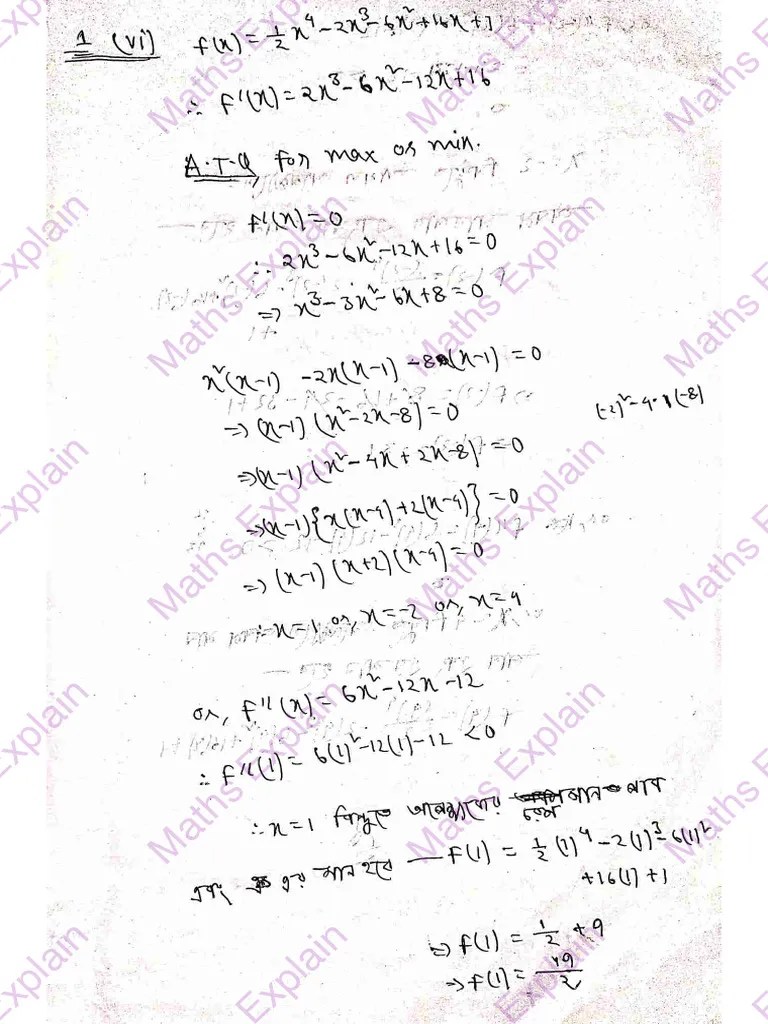 1 (vi) f(x) = 1/2 x⁴ - 2x³ - 6x² + 16x + 1
∴ f'(x) = 2x³ - 6x² - 12x + 16
A.T.Q for max or min.
f'(x) = 0
∴ 2x³ - 6x² - 12x + 16 = 0
⇒ x³ - 3x² - 6x + 8 = 0
x²(x-1) - 2x(x-1) - 8(x-1) = 0
⇒ (x-1) (x² - 2x - 8) = 0
(-2)² - 4·1(-8)
⇒ (x-1) (x² - 4x + 2x - 8) = 0
⇒ (x-1) {x(x-4) + 2(x-4)} = 0
⇒ (x-1) (x+2) (x-4) = 0
∴ x = 1 or, x = -2 or, x = 4
or, f''(x) = 6x² - 12x - 12
∴ f''(1) = 6(1)² - 12(1) - 12 < 0
∴ x = 1 বিন্দুতে
এবং এর মান হবে — f(1) = 1/2 (1)⁴ - 2(1)³ - 6(1)²
+ 16(1) + 1
⇒ f(1) = 1/2 + 9
⇒ f(1) = 19/2
Maths Explain